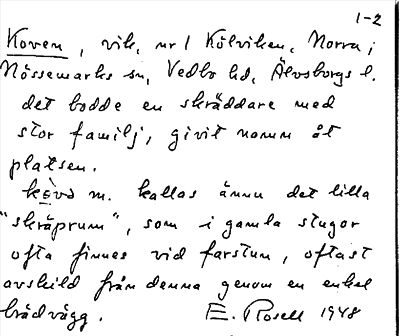 1-2
Koven, vik, nr 1 Kölviken, Norra i
Nössemarks sn, Vedbo hd, Älvsborgs l.
det bodde en skräddare med
stor familj, givit namn åt
platsen.
kòvə m. kallas ännu det lilla
"skräprum", som i gamla stugor
ofta finnes vid farstun, oftast
avskild från denna genom en enkel
brädvägg. E. Rosell 1948